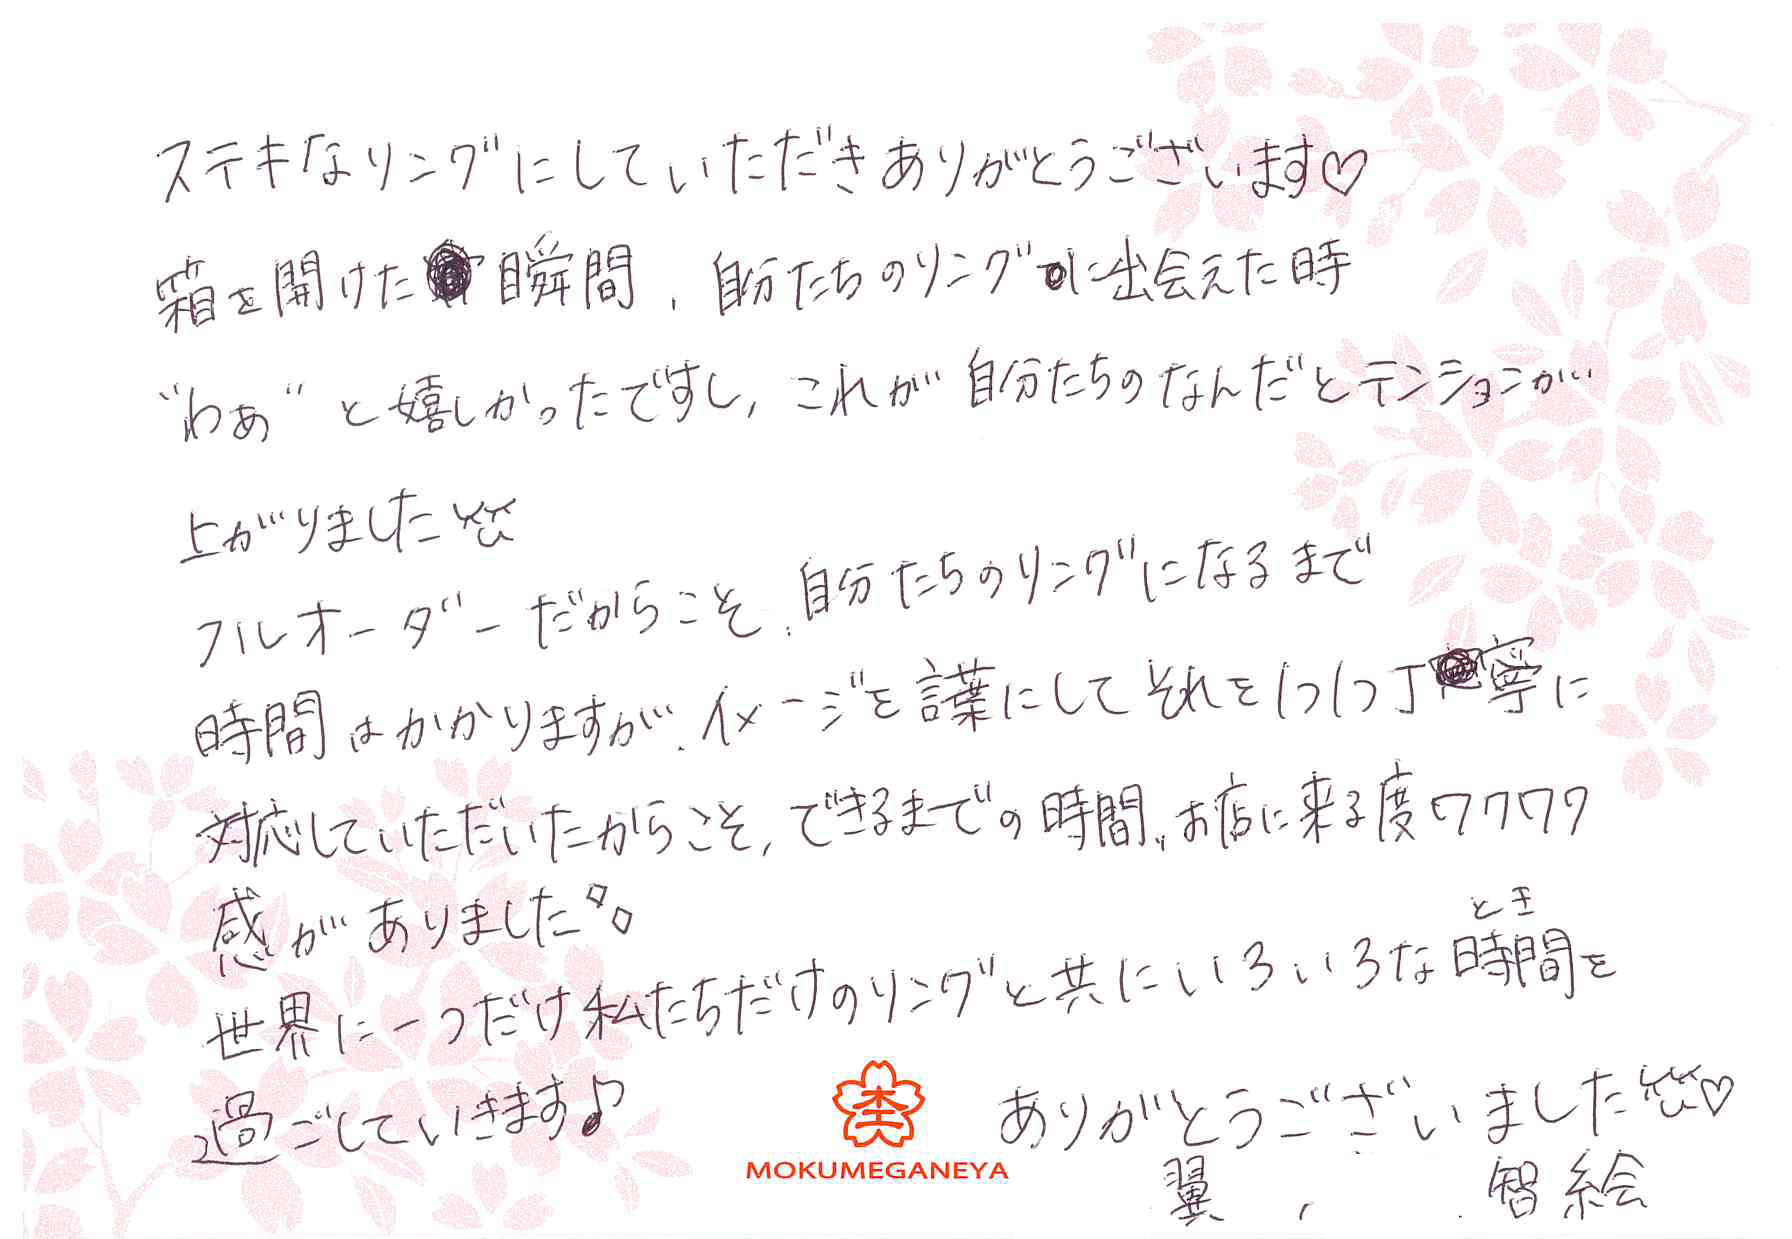 ステキなリングにしていただきありがとうございます♡
箱を開けた瞬間、自分たちのリングに出会えた時
"わぁ"と嬉しかったですし、これが自分たちのなんだとテンションが
上がりました
フルオーダーだからこそ、自分たちのリングになるまで
時間はかかりますが、イメージを言葉にしてそれを1つ1つ丁寧に
対応していただいたからこそ、できるまでの時間、お店に来る度ワクワク
感がありました
とき
世界に一つだけ私たちだけのリングと共にいろいろな時間を
過ごしていきます♪
ありがとうございました♡
翼、智絵
杢
MOKUMEGANEYA